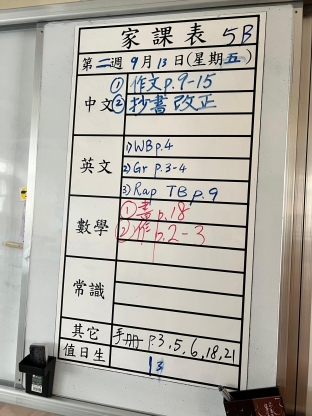 家課表 5B
第二週 9月13日(星期五)
中文 ① 作文 p.9-15
② 抄書 改正
英文 1) WB p.4
2) Gr p.3-4
3) Rap TB p.9
數學 ① 書 p.18
② 作 p.2-3
常識
其它 手冊 p.3,5,6,18,21
值日生 13